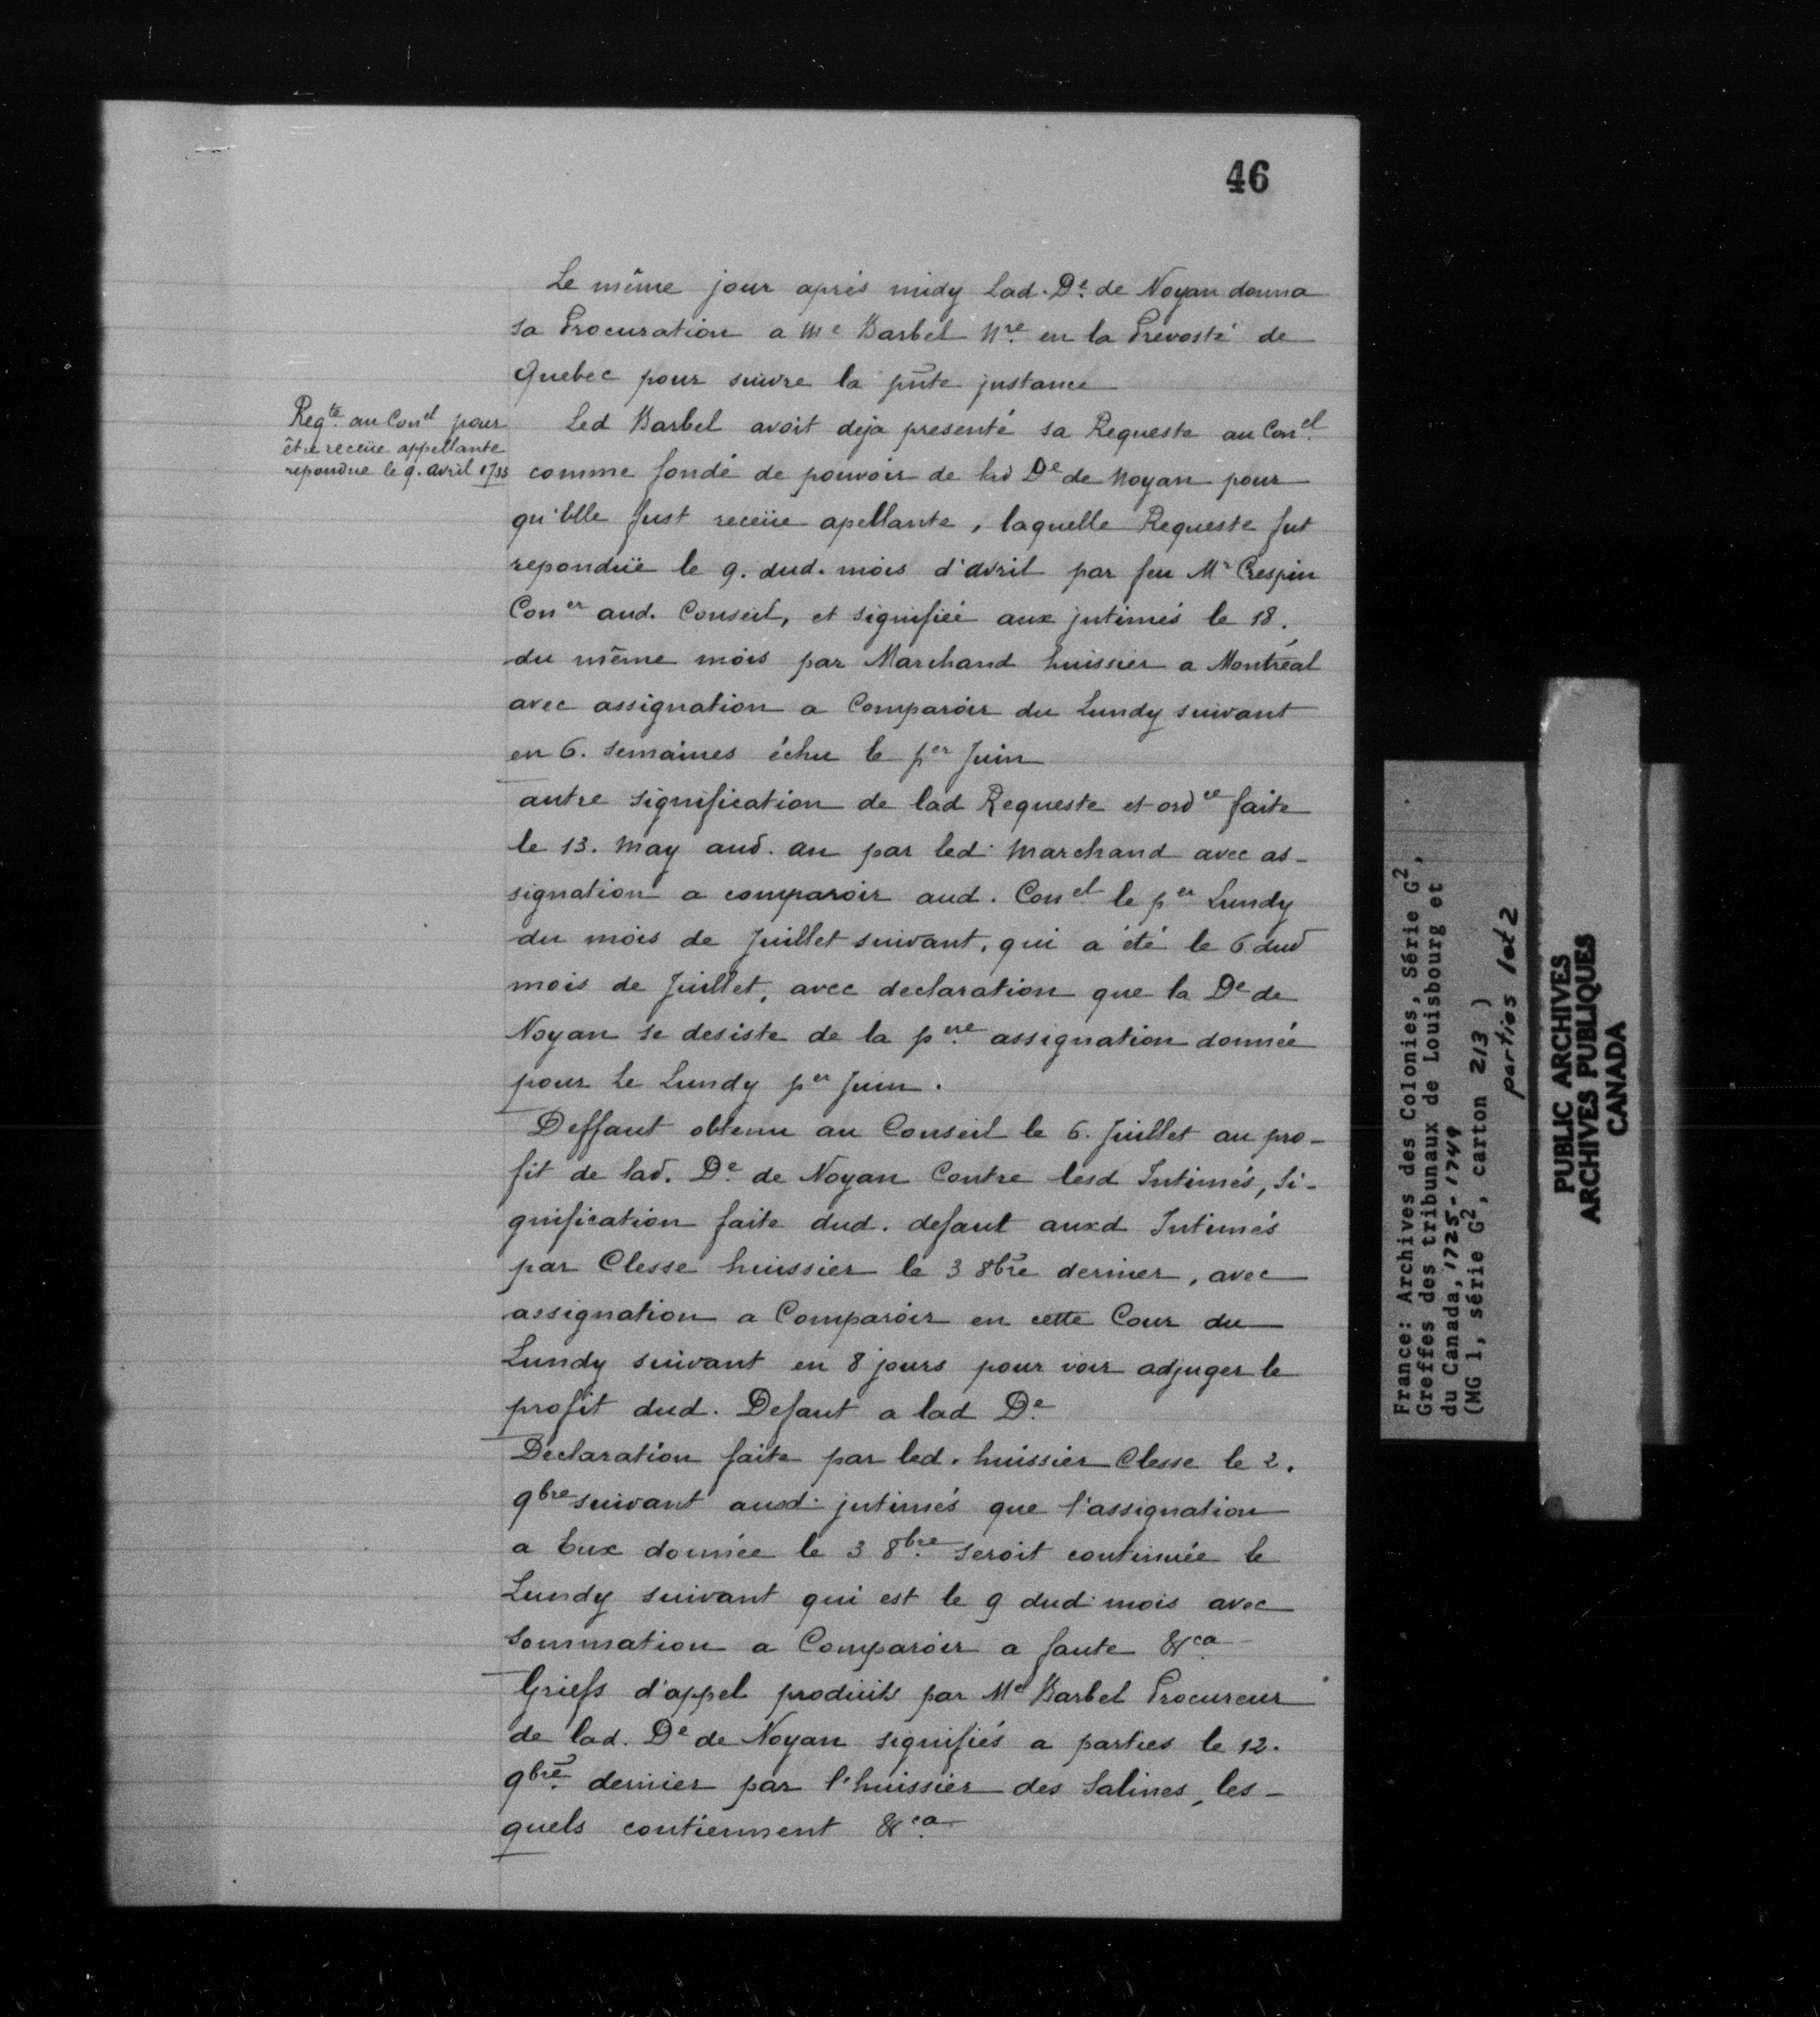 46
Le même jour après midy Lad. De. de Noyan donna
sa Procuration a Me Barbel Nre. en la Prevosté de
Quebec pour suivre la pñte jnstance
Reqte. au Conel pour
être receüe appellante
repondue le 9. avril 1733
Led Barbel avoit deja presenté sa Requeste au Conel.
comme fondé de pouvoir de lad De de Noyan pour
qu'Elle fust receüe apellante, laquelle Requeste fut
reponduë le 9. dud. mois d'avril par feu Mr Crespin
Coner aud. Conseil, et signifiée aux jntimés le 18.
du même mois par Marchand huissier a Montréal
avec assignation a Comparoir du Lundy suivant
en 6. semaines échu le per Juin
autre signification de lad Requeste et ordce faite
le 13. May aud. an par led. Marchand avec as-
signation a comparoir aud. Conel le per Lundy
du mois de Juillet suivant, qui a été le 6 dud
mois de Juillet, avec declaration que la De de
Noyan se desiste de la pere. assignation donnée
pour Le Lundy per Juin.
Deffaut obtenu au Conseil le 6. Juillet au pro-
fit de lad. De. de Noyan Contre lesd Intimés, Si-
gnification faite dud. defaut auxd Intimés
par Clesse huissier le 3 8bre dernier, avec
assignation a Comparoir en cette Cour du
Lundy suivant en 8 jours pour voir adjuger le
profit dud. Defaut a lad De.
Declaration faite par led. huissier Clesse le 2.
9bre suivant auxd. jntimés que l'assignation
a Eux donnée le 3 8bre. seroit continuée le
Lundy suivant qui est le 9 dud. mois avec
sommation a Comparoir a faute &ca.
Griefs d'appel produits par Me Barbel Procureur
de lad. De de Noyan signifiés a parties le 12.
9bre. dernier par l'huissier des Salines, les-
quels contiennent &ca.
France: Archives des Colonies, Série G2,
Greffes des tribunaux de Louisbourg et
du Canada, 1725-1749
(MG 1, série G2, carton 213 )
parties 1 et 2
PUBLIC ARCHIVES
ARCHIVES PUBLIQUES
CANADA